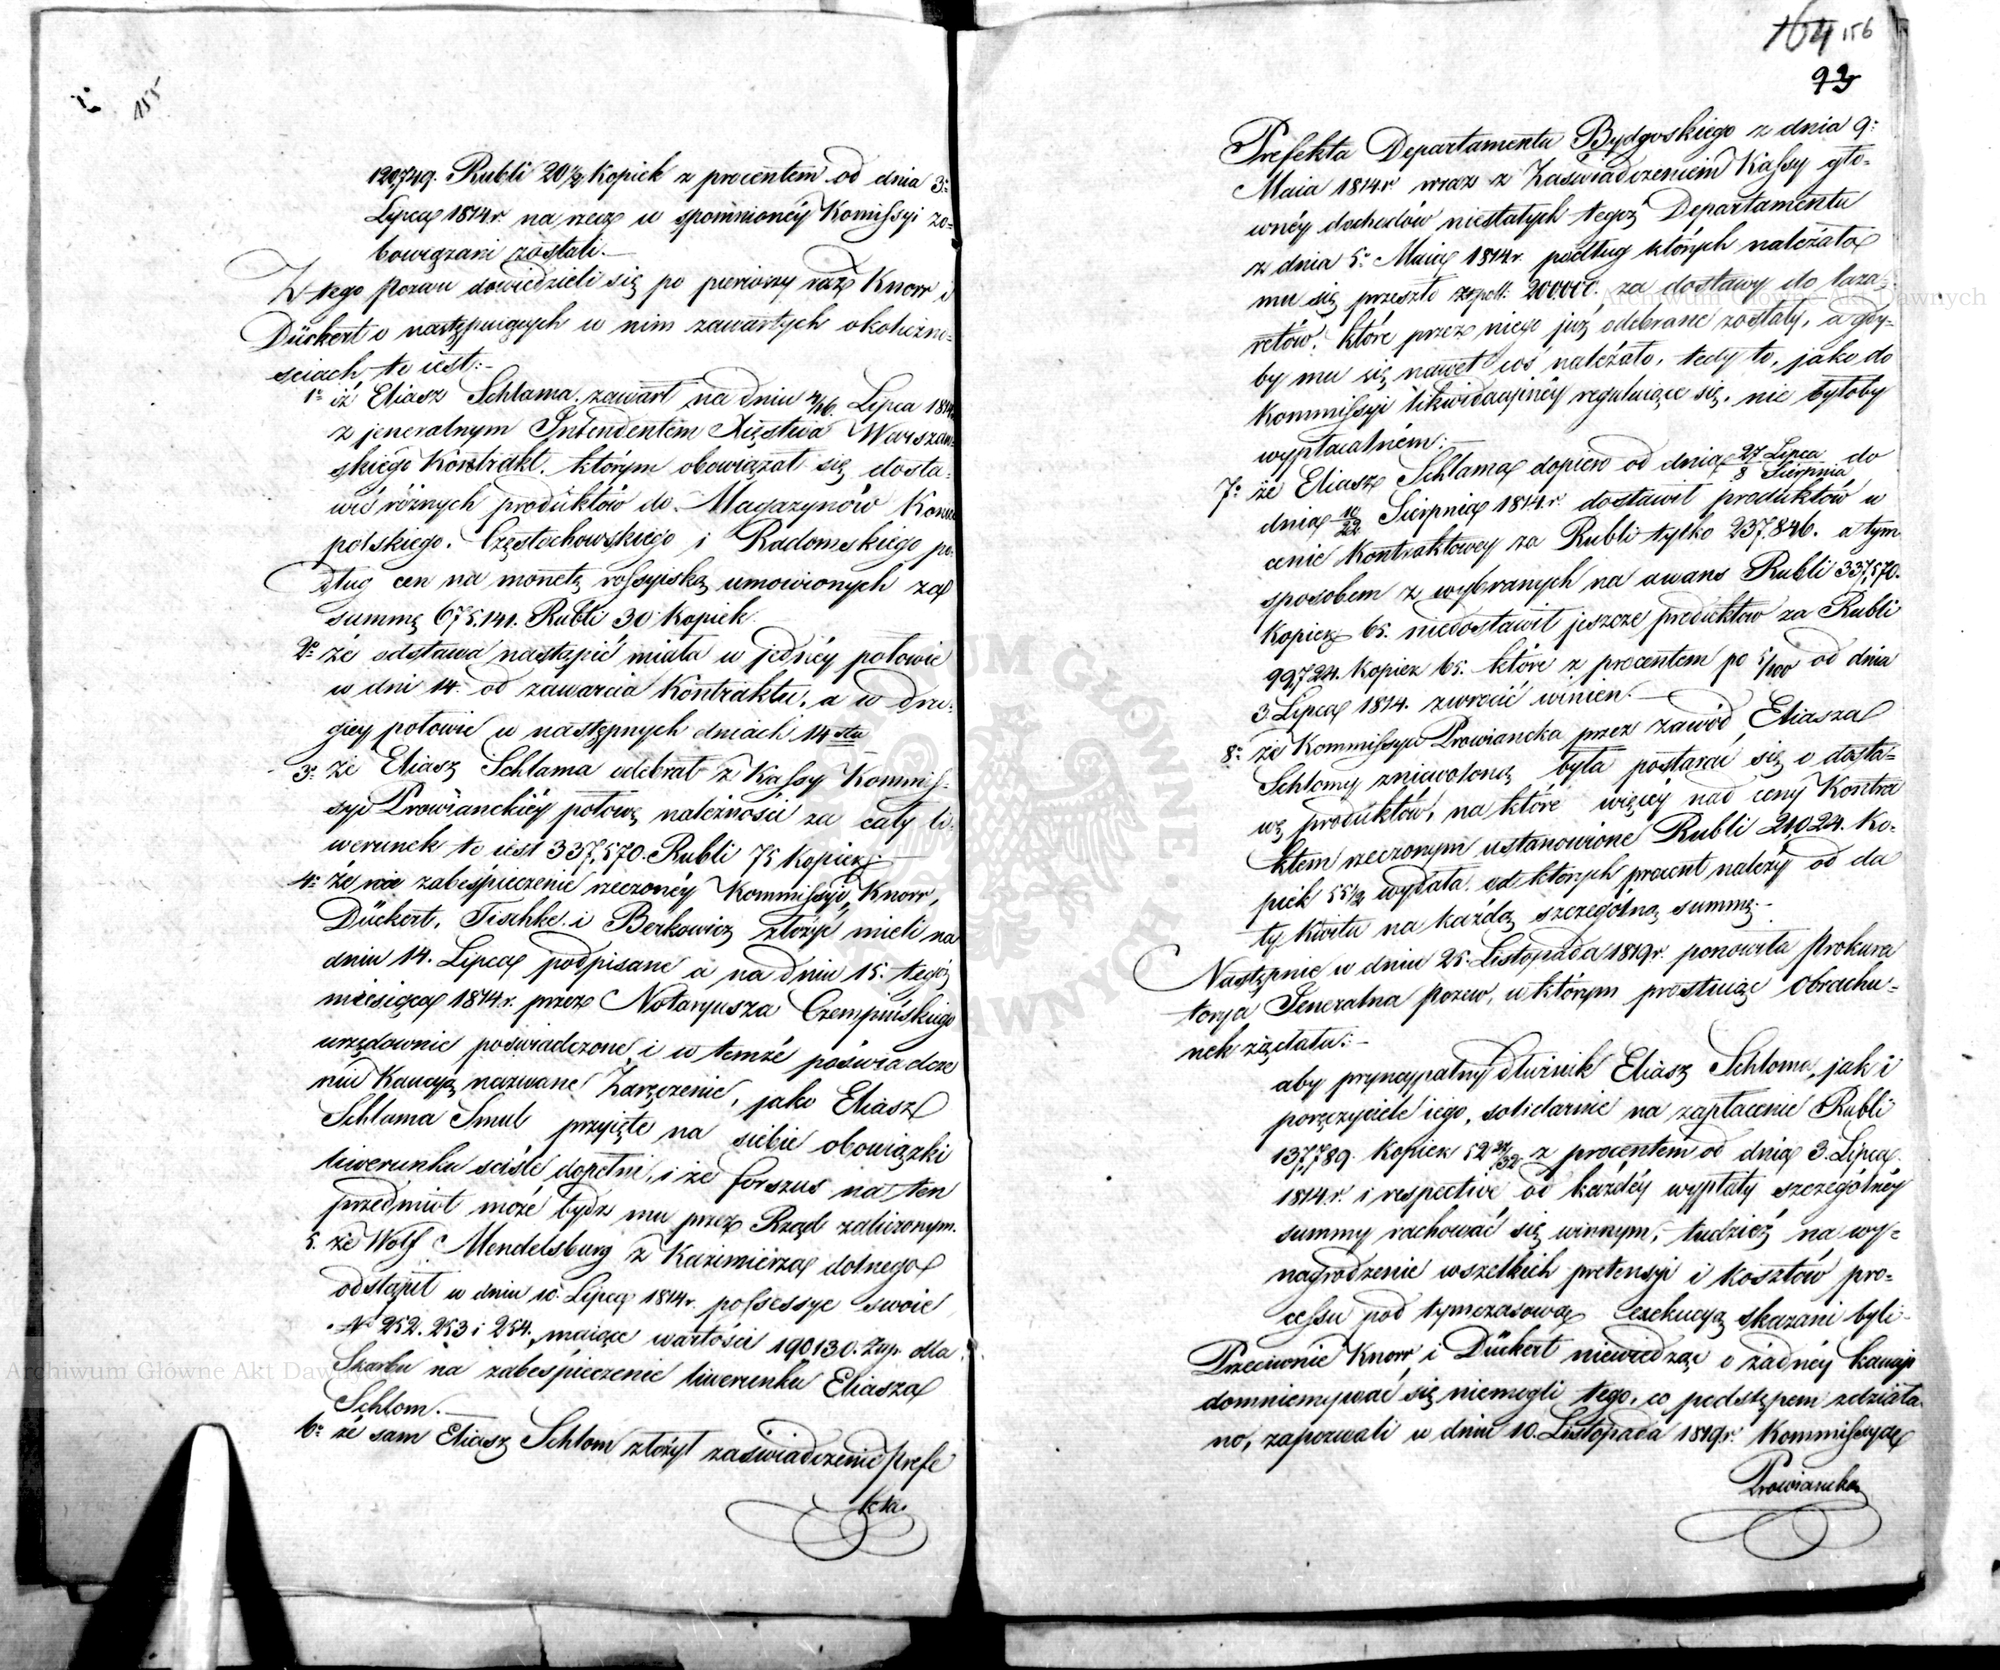 155
120,749. Rubli 20 1/2 Kopiek z procentem od dnia 3º
Lipca 1814r na rzecz w spomnionéy Komissyi zo-
bowiązani zostali.
Z tego Pozwu dowiedzieli się po pierwszy raz Knorr i
Dückert o następuiących w nim zawartych okoliczno-
ściach to iest:
1º iż Eliasz Schlama zawarł na dniu 4/16 Lipca 1814
z jeneralnym Intendentem Xięstwa Warszaw-
skiego Kontrakt, którym obowiązał się dosta-
wić różnych produktów do Magazynów Konie
polskiego, Częstochowskiego i Radomskiego po-
dług cen na monetę rossyiską umowionych za
summę 675,141. Rubli 30 Kopiek
2º że odstawa nastąpić miała w jednéy połowie
w dni 14. od zawarcia Kontraktu, a w dru-
giey połowie w następnych dniach 14stu
3º że Eliasz Schlama odebrał z Kassy Kommis-
syi Prowianckiéy połowę należności za cały li-
werunek to iest 337,570. Rubli 75 Kopiek:
4º że na zabespieczenie rzeczonéy Kommissyi, Knorr,
Dückert, Tischke i Berkowicz złożyć mieli na
dniu 14. Lipca podpisane a na dniu 15. tegoż
miesiąca 1814r. przez Notaryusza Czempińskiego
urzędownie poświadczone, i w temże poświadcze
niu Kaucyą nazwane Zaręczenie, jako Eliasz
Schlama Smul przyięte na siebie obowiązki
liwerunku ściśle dopełni, i że forszus na ten
przedmiot może bydź mu przez Rząd zaliczonym.
5. że Wolf Mendelsburg z Kazimierza dolnego
odstąpił w dniu 10. Lipca 1814r. possessye swoie
Nº 252. 253 i 254., maiące wartości 190130. Złp. dla
Skarbu na zabespieczenie liwerunku Eliasza
Schlom.
6º że sam Eliasz Schlom złożył zaświadczenie Prefe
kta.
164 156
93
Prefekta Departamentu Bydgoskiego z dnia 9º
Maia 1814r wraz z Zaświadczeniem Kassy głó-
wnéy dochodów niestałych tegoż Departamentu
z dnia 5º Maia 1814r. podług których należało
mu się przeszło złpoll: 200,000. za dostawy do laza-
retów, które przez niego już odebrane zostały, a gdy-
by mu się nawet coś należało, tedy to, jako do
Kommissyi likwidacyjnéy regulujące się, nie byłoby
wypłacalném:
7º że Eliasz Schlama dopiero od dnia 27 Lipca / 8 Sierpnia do
dnia 10/22 Sierpnia 1814.r. dostawił produktów w
cenie Kontraktowey za Rubli tylko 237,846. a tym
sposobem z wybranych na awans Rubli 337,570.
Kopiek 65. niedostawił jeszcze produktów za Rubli
99,724. Kopiek 65. które z procentem po 5/100 od dnia
3 Lipca 1814. zwrócić winien.
8º że Kommissya Prowiancka przez zawód Eliasza
Schlomy zniewoloną była postarać się o dosta-
wę produktów, na które więcéy nad ceny Kontra
ktem rzeczonym ustanowione Rubli 21,024. Ko-
piek 55 1/2 wydała, od których procent należy od da
ty Kwitu na każdą szczególną summę.
Następnie w dniu 25. Listopada 1819r. ponowiła Prokura
torya Jeneralna Pozew, w którym prostując Obrachu-
nek żądała:
aby pryncypalny dłużnik Eliasz Schloma, jak i
poręczyciele iego, solidarnie na zapłacenie Rubli
137,789. Kopiek 52 24/32 z procentem od dnia 3. Lipca
1814r. i respective od każdéy wypłaty szczególnéy
summy rachować się winnym, tudzież na wy-
nagrodzenie wszelkich pretensyi i kosztów pro-
cessu pod tymczasową exekucyą skazani byli
Przeciwnie Knorr i Dückert niewiedząc o żadnéy kaucyi
domniemywać się niemogli tego, co podstępem zdziała
no, zapozwali w dniu 10. Listopada 1819r. Kommissyą
Prowiancką